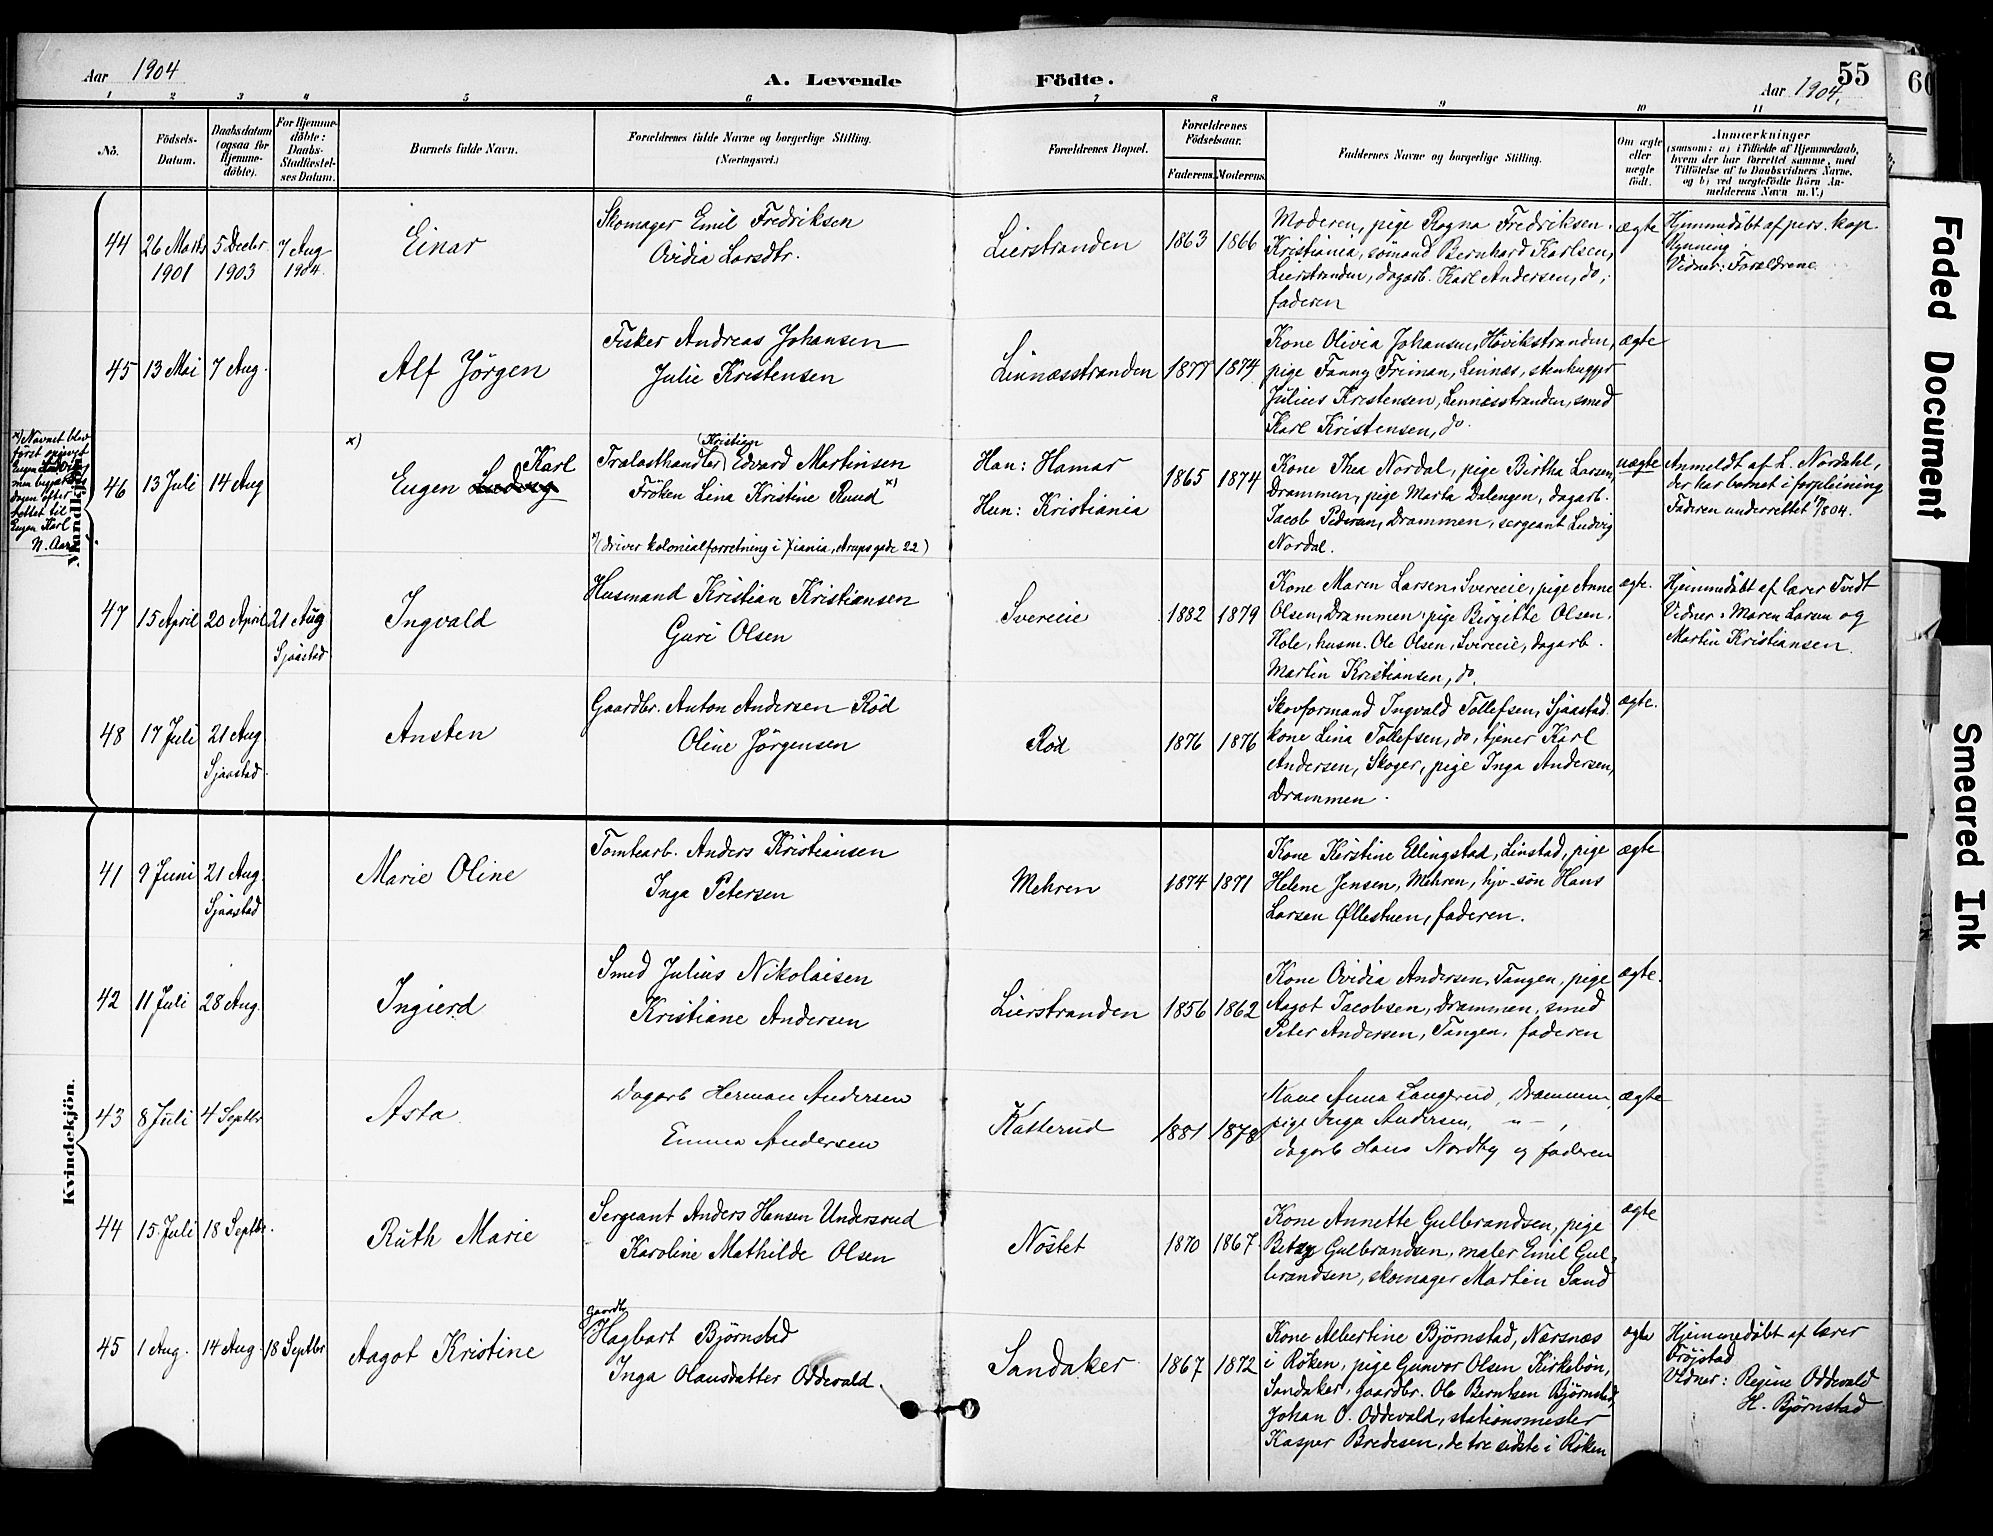 Aar 1904
A. Levende Fødte.
55
Aar 1904.
60
1 2 3 4 5 6 7 8 9 10 11
No.
Fødsels-Datum.
Daabsdatum (ogsaa for Hjemme-døbte).
For Hjemme-døbte: Daabs-Stadfæstel-ses Datum.
Barnets fulde Navn.
Forældrenes fulde Navne og borgerlige Stilling.
(Næringsvei.)
Forældrenes Bopæl.
Forældrenes Fødselsaar.
Faderens. Moderens.
Faddernes Navne og borgerlige Stilling.
Om ægte eller uægte født.
Anmærkninger
(saasom: a) i Tilfælde af Hjemmedaab,
hvem der har forrettet samme, med
Tilføielse af to Daabsvidners Navne,
og b) ved uægtefødte Børn An-
melderens Navn m. V.)
Mandkjøn.
44
26 Marts 1901
5 Decbr. 1903
7 Aug 1904
Einar
Skomager Emil Fredriksen
Ovidia Larsdtr.
Lierstranden
1863 1866
Moderen, pige Ragna Fredriksen,
Kristiania, sømand Bernhard Karlsen,
Lierstranden, dagarb. Karl Andersen, do,
faderen
ægte
Hjemmedøbt af pers. kap.
Vidner: Forældrene
45
13 Mai
7 Aug.
Alf Jörgen
Fisker Andreas Johansen
Julie Kristensen
Linnæsstranden
1877 1874
Kone Olivia Johansen, Høvikstranden,
pige Fanny Freiman, Linnæs, stenhugger
Julius Kristensen, Linnæsstranden, smed
Karl Kristensen, do
ægte
x) Navnet blev
først opgivet
Eugen Ludvig
men
dagen efter
rettet til
Eugen Karl
N. Aars
46
13 Juli
14 Aug
x)
Eugen Ludvig Karl
Trælasthandler Kristian Edvard Martinsen
Frøken Lina Kristine Ruud x)
x) (driver kolonialforretning i Xiania, Arupsgade 22)
Han: Hamar
Hun: Kristiania
1865 1874
Kone Thea Nordal, pige Birtha Larsen,
Drammen, pige Marta Dalengen, dagarb.
Jacob Pedersen, Drammen, sergeant Ludvig
Nordal.
uægte
Anmeldt af L. Nordahl,
der har barnet i forpleining
Faderen underrettet 17/8 04.
47
15 April
20 April
21 Aug Sjaastad
Ingvald
Husmand Kristian Kristiansen
Guri Olsen
Svereie
1882 1879
Kone Maren Larsen, Svereeie, pige Anne
Olsen, Drammen, pige Birgitte Olsen,
Hole, husm. Ole Olsen, Svereeie, dagarb.
Martin Kristiansen, do.
ægte.
Hjemmedøbt af lærer Tvedt
Vidner: Maren Larsen og
Martin Kristiansen.
48
17 Juli
21 Aug Sjaastad.
Ansten
Gaardbr. Anton Andersen Röd
Oline Jörgensen
Röd
1876 1876
Skovformand Ingvald Tollefsen, Sjaastad
kone Lina Tollefsen, do, tjener Karl
Andersen, Skoger, pige Inga Andersen,
Drammen.
ægte.
Kvindekjön.
41
9 Juni
21 Aug. Sjaastad
Marie Oline
Tomtearb. Anders Kristiansen
Inga Petersen
Mehren
1874 1871
Kone Kerstine Ellingstad, Linstad, pige
Helene Jensen, Mehren, hjv. sön Hans
Larsen Øllestuen, faderen.
ægte
42
11 Juli
28 Aug.
Ingierd
Smed Julius Nikolaisen
Kristiane Andersen
Lierstranden
1856 1862
Kone Ovidia Andersen, Tangen, pige
Aagot Jacobsen, Drammen, smed
Peter Andersen, Tangen, faderen
ægte.
43
8 Juli
4 Septbr
Asta
Dagarb Herman Andersen
Emma Andersen
Katterud
1881 1878
Kone Anna Langerud, Drammen,
pige Inga Andersen, " — ,
dagarb Hans Nordby og faderen
ægte
44
15 Juli
18 Septbr.
Ruth Marie
Sergeant Anders Hansen Undersrud
Karoline Mathilde Olsen
Nöstet
1870 1867
Kone Annette Gulbrandsen, pige
Betzy Gulbrandsen, maler Emil Gul-
brandsen, skomager Martin Sand
ægte
45
1 Aug.
14 Aug
18 Septbr
Aagot Kristine
gaardb. Hagbart Björnstad
Inga Olausdatter Oddevald.
Sandaker
1867 1872
Kone Albertine Björnstad, Nærsnæs
i Röken, pige Gunvor Olsen Kirkebön,
Sandaker, gaardbr. Ole Berntsen Björnstad,
Johan O. Oddevald, stationsmester
Kasper Bredesen, de tre sidste i Röken
ægte
Hjemmedöbt af lærer
Fröjstad
Vidner: Regine Oddevald
H. Björnstad
Faded Document
Smeared Ink